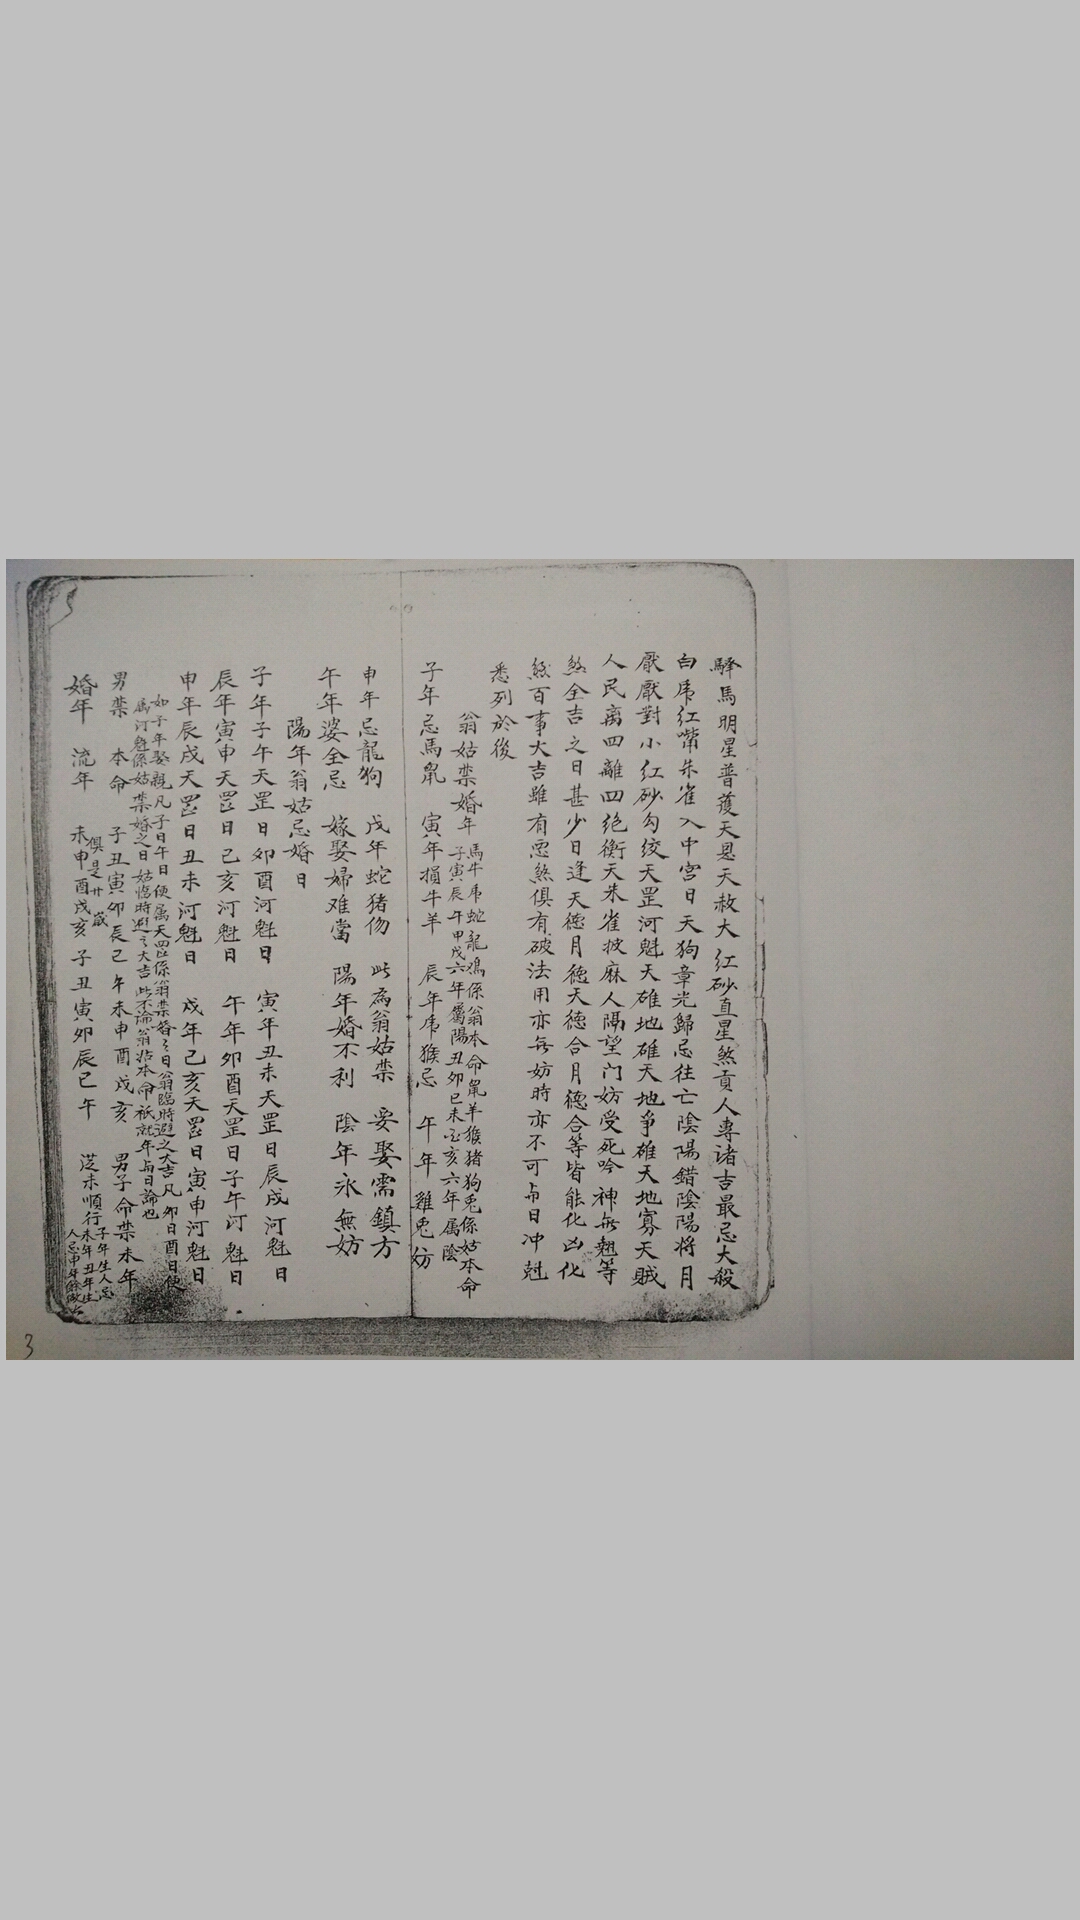 驛馬明星普護天恩天赦大紅砂直星煞貢人專諸吉最忌大殺
白虎紅嘴朱雀入中宮日天狗章光歸忌往亡陰陽錯陰陽將月
厭厭對小紅砂勾绞天罡河魁天碓地碓天地爭碓天地寡天賊
人民离四離四绝衡天朱雀披麻人隔望门妨受死吟神無翹等
煞全吉之日甚少日逢天德月德天德合月德合等皆能化凶化
煞百事大吉雖有惡煞俱有破法用亦無妨時亦不可与日冲尅
悉列於後
翁姑禁婚年
馬牛虎蛇龍鷄係翁本命鼠羊猴猪狗兎係姑本命
子寅辰午申戌六年屬陽丑卯巳未酉亥六年属陰
子年忌馬鼠 寅年損牛羊 辰年虎猴忌 午年雞兎妨
申年忌龍狗 戌年蛇猪伤 此為翁姑禁 要娶需鎮方
午年婆全忌 嫁娶婦难當 陽年婚不利 陰年永無妨
陽年翁姑忌婚日
子年子午天罡日卯酉河魁日 寅年丑未天罡日辰戍河魁日
辰年寅申天罡日己亥河魁日 午年卯酉天罡日子午河魁日
申年辰戍天罡日丑未河魁日 戍年己亥天罡日寅申河魁日
如子年娶親凡子日午日便属天罡係翁禁婚之日翁臨時避之大吉凡卯日酉日便
属河魁係姑禁婚之日姑临時避之大吉此不論翁姑本命祗就年与日論也
男禁 本命 子丑寅卯辰己午未申酉戍亥 男子命禁未年
婚年 流年 未申酉戍亥子丑寅卯辰己午 従未順行
俱是廿歲
子年生人忌
未年丑年生
人忌申年餘做此
3